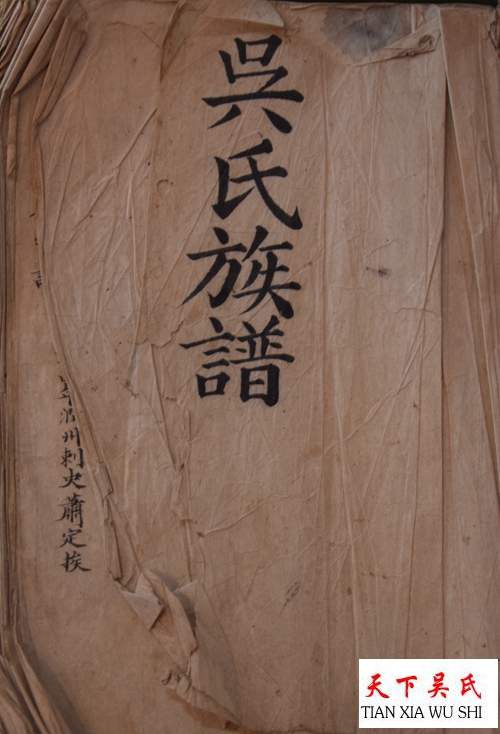 吳氏族譜
州刺史蕭定
天下吴氏
TIAN XIA WU SHI